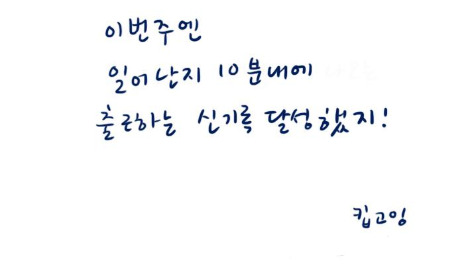 이번주엔
일어난지 10분내에
출근하는 신기록 달성했지!
킵고잉